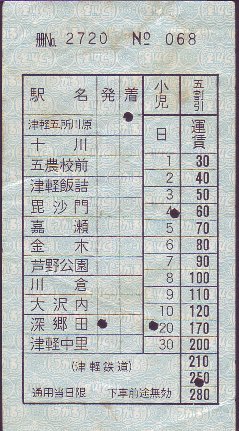 冊No. 2720 No 068
駅名 発 着 小児 五割引
津軽五所川原 日 運賃
十川 1 30
五農校前 2 40
津軽飯詰 3 50
毘沙門 4 60
嘉瀬 5 70
金木 6 80
芦野公園 7 90
川倉 8 100
大沢内 9 110
深郷田 10 120
津軽中里 20 170
30 200
(津軽鉄道) 210
250
通用当日限 下車前途無効 280